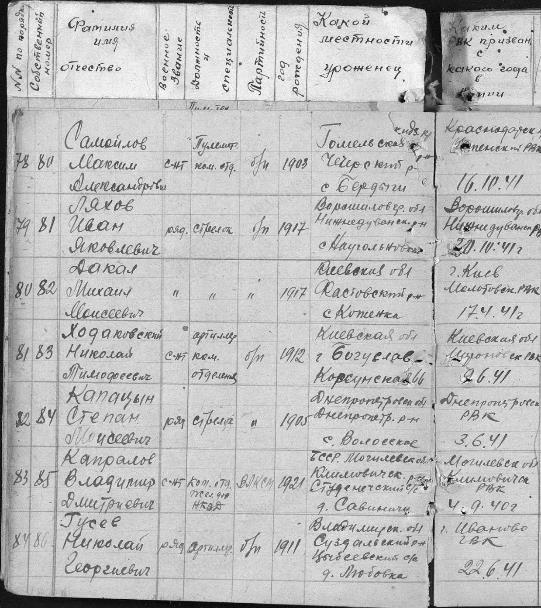 №№ по порядк
Собственный номер
Фамилия имя отчество
Военное звание
Должность и специальной
Партийност
год рождения
Какой местности уроженец
Каким РВК призван с какого года в
78 80 Самойлов Максим Александрови
с-нт
Пулемет. ком. отд.
б/п
1903
Гомельская
с. Бердыги
Краснодарск
16.10.41
79 81 Ляхов Иван Яковлевич
ряд. стрелок
б/п
1917
Ворошиловгр. обл
Нижнедуванск. рн
Ворошиловгр. обл
Нижнедуванск РВ
20.10.41г
80 82 Дакал Михаил Моисеевич
" " "
1917
Киевская обл
Фастовский рн
г. Киев
Молотовск. РВК
17.4.41г
81 83 Ходаковский Николай Тимофеевич
с-нт
артиллер ком. отделения
б/п
1912
Киевская обл
г Богуслав
Киевская обл
6.41
82 84 Степан Моисеевич
ряд стрелка
"
1905
Днепропетровск обл
Днепропетр. р-н
с. Волосское
Днепропетровск
РВК
3.6.41
83 85 Капралов Владимир Дмитриевич
с-нт
ком. отд.
НКВД
ВЛКСМ
1921
БССР Могилевск обл
Климовичск.
д. Савиничи
Могилевск об
Климовичск РВК
4.9.40г
84 86 Гусев Николай Георгиевич
ряд артиллер.
б/п
1911
Владимирск. обл
Суздальский рн
д. Любовка
г. Иваново
ГВК
22.6.41